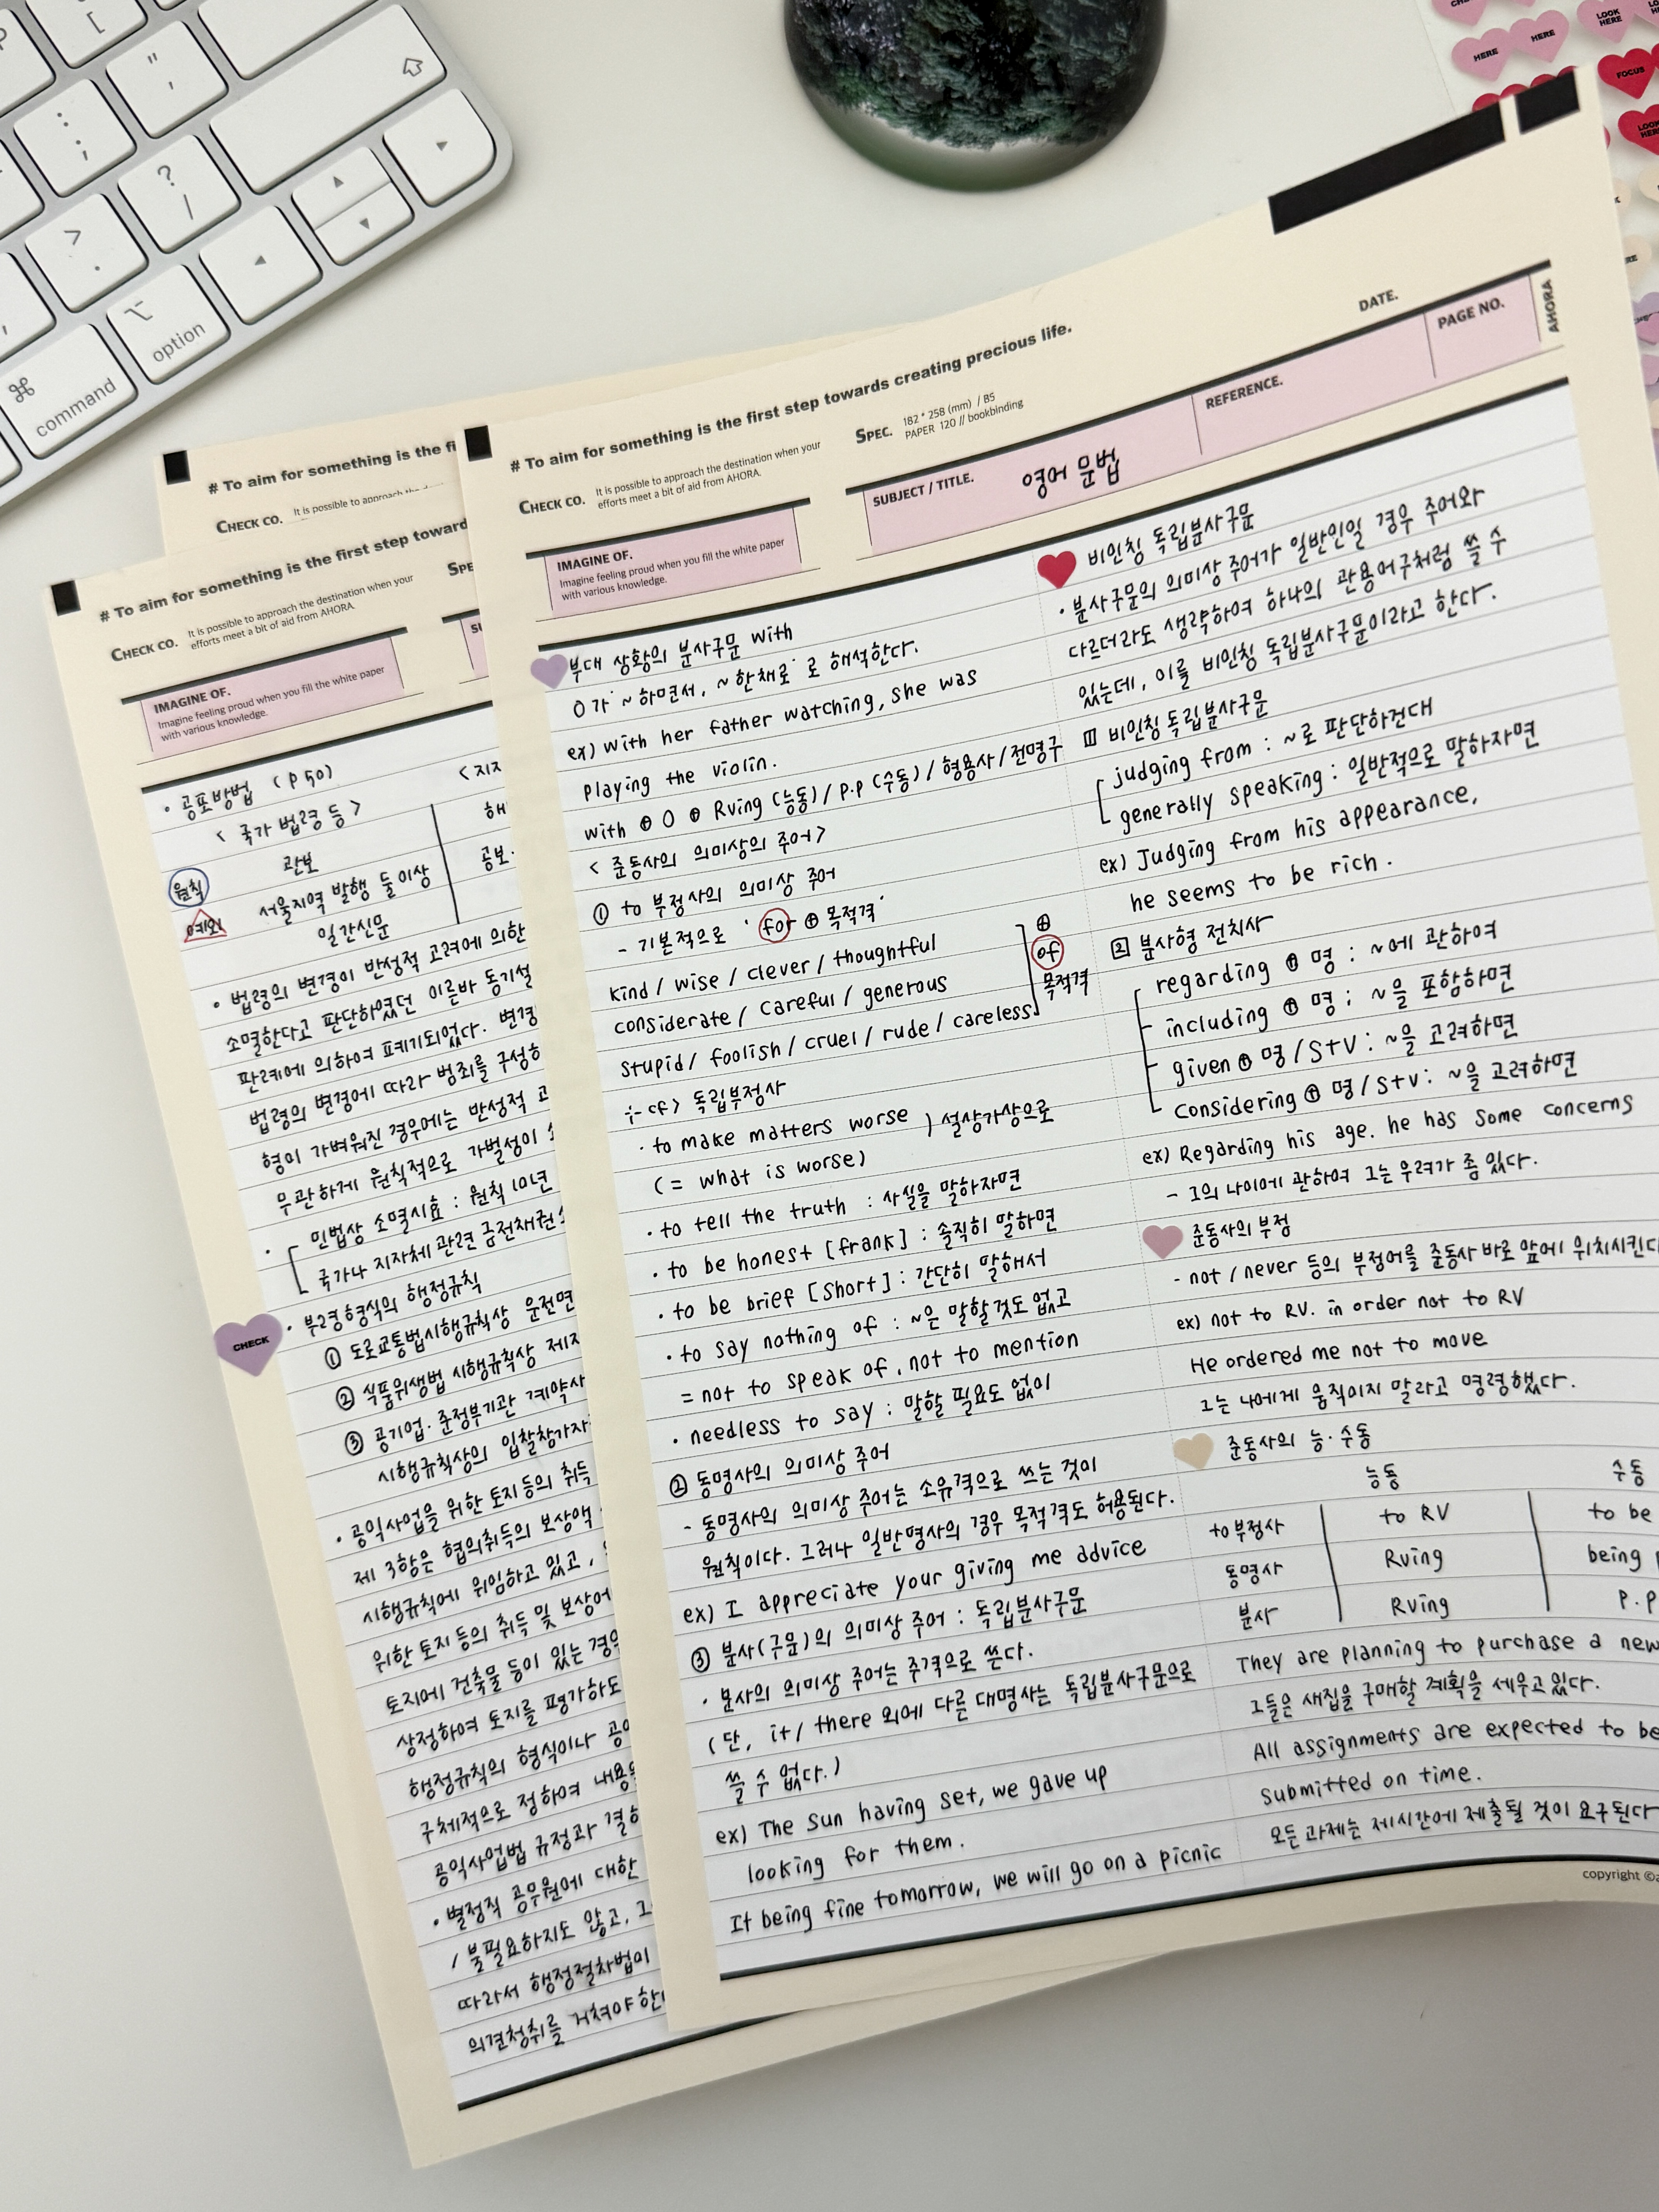 P
[
" '
: ;
? /
> .
,
⌘
command
⌥
option
HERE
HERE
LOOK HERE
FOCUS
LOOK HERE
# To aim for something is the fi
CHECK CO. It is possible to approach the
# To aim for something is the first step toward
CHECK CO. It is possible to approach the destination when your
efforts meet a bit of aid from AHORA.
SPE
IMAGINE OF.
Imagine feeling proud when you fill the white paper
with various knowledge.
SU
· 공포방법 (P 50)
< 국가 법령 등 >
< 지자
관보
해
원칙
서울지역 발행 둘 이상
공보·
예외
일간신문
· 법령의 변경이 반성적 고려에 의한
소멸한다고 판단하였던 이른바 동기설
판례에 의하여 폐기되었다. 변경
법령의 변경에 따라 범죄를 구성하
형이 가벼워진 경우에는 반성적 고
무관하게 원칙적으로 가벌성이
· 민법상 소멸시효 : 원칙 10년
국가나 지자체 관련 금전채권
· 부령형식의 행정규칙
CHECK
① 도로교통법시행규칙상 운전면
② 식품위생법 시행규칙상 제재
③ 공기업·준정부기관 계약사
시행규칙상의 입찰참가자
· 공익사업을 위한 토지 등의 취득
제 3항은 협의취득의 보상액
시행규칙에 위임하고 있고,
위한 토지 등의 취득 및 보상에
토지에 건축물 등이 있는 경우
상정하여 토지를 평가하도
행정규칙의 형식이나 공익
구체적으로 정하여 내용
공익사업법 규정과 결합
· 별정직 공무원에 대한
/ 불필요하지도 않고, 그
따라서 행정절차법이
의견청취를 거쳐야 한
# To aim for something is the first step towards creating precious life.
CHECK CO. It is possible to approach the destination when your
efforts meet a bit of aid from AHORA.
SPEC. 182 * 258 (mm) / B5
PAPER 120 // bookbinding
DATE.
IMAGINE OF.
Imagine feeling proud when you fill the white paper
with various knowledge.
SUBJECT / TITLE. 영어 문법
REFERENCE.
PAGE NO.
AHORA
부대 상황의 분사구문 with
O가 '~하면서, ~한채로' 로 해석한다.
ex) with her father watching, she was
playing the violin.
with ⊕ O ⊕ Rving (능동) / P.P (수동) / 형용사 / 전명구
< 준동사의 의미상의 주어 >
① to 부정사의 의미상 주어
- 기본적으로 ' for ⊕ 목적격'
kind / wise / clever / thoughtful
considerate / careful / generous
stupid / foolish / cruel / rude / careless
⊕
of
목적격
cf > 독립부정사
· to make matters worse ) 설상가상으로
( = what is worse)
· to tell the truth : 사실을 말하자면
· to be honest [frank] : 솔직히 말하면
· to be brief [short] : 간단히 말해서
· to say nothing of : ~은 말할것도 없고
= not to speak of, not to mention
· needless to say : 말할 필요도 없이
② 동명사의 의미상 주어
- 동명사의 의미상 주어는 소유격으로 쓰는 것이
원칙이다. 그러나 일반명사의 경우 목적격도 허용된다.
ex) I appreciate your giving me advice
③ 분사(구문)의 의미상 주어 : 독립분사구문
· 분사의 의미상 주어는 주격으로 쓴다.
( 단, it / there 외에 다른 대명사는 독립분사구문으로
쓸 수 없다. )
ex) The sun having set, we gave up
looking for them.
It being fine tomorrow, we will go on a picnic
비인칭 독립분사구문
· 분사구문의 의미상 주어가 일반인일 경우 주어와
다르더라도 생략하여 하나의 관용어구처럼 쓸 수
있는데, 이를 비인칭 독립분사구문이라고 한다.
1 비인칭 독립분사구문
judging from : ~로 판단하건대
generally speaking : 일반적으로 말하자면
ex) Judging from his appearance,
he seems to be rich.
2 분사형 전치사
regarding ⊕ 명 : ~에 관하여
including ⊕ 명 : ~을 포함하면
given ⊕ 명 / S+V : ~을 고려하면
considering ⊕ 명 / S+V : ~을 고려하면
ex) Regarding his age. he has some concerns
- 그의 나이에 관하여 그는 우려가 좀 있다.
준동사의 부정
- not / never 등의 부정어를 준동사 바로 앞에 위치시킨다
ex) not to RV. in order not to RV
He ordered me not to move
그는 나에게 움직이지 말라고 명령했다.
준동사의 능·수동
능동 수동
to부정사 to RV to be
동명사 Rving being
분사 Rving P.P
They are planning to purchase a new
그들은 새집을 구매할 계획을 세우고 있다.
All assignments are expected to be
submitted on time.
모든 과제는 제시간에 제출될 것이 요구된다
copyright ©